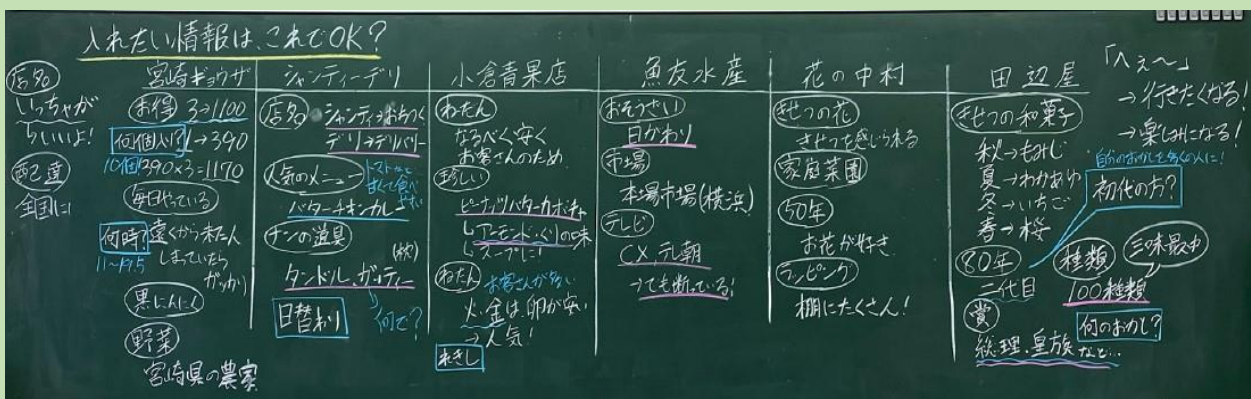 入れたい情報は、これでOK?
店名
いっちゃが
らしいよ!
配達
全国に!
宮崎ギョウザ
お得 3→1100
何個入り? 1→390
10個 390×3=1170
毎日やっている
何時? 遠くから来たん
11〜19.5 しまっていたら
ガッカリ
黒にんにく
野菜
宮崎県の農家
シャンティーデリ
店名 シャンティ→おちつく
デリ→デリバリー
人気のメニュー
バターチキンカレー
トマトなど
甘くて食べ
やすい
ナンの道具
タンドル、ガッティー
日替わり
何で?
小倉青果店
ねだん
なるべく安く
お客さんのため
珍しい
ピーナッツバターカボチャ
↳アーモンド、くりの味
↳スープに!
ねだん お客さんが多い
火、金は、卵が安い
→人気!
れきし
魚友水産
おそうざい
日がわり
市場
本場市場(横浜)
テレビ
CX、テレ朝
→でも断っている!
花の中村
きせつの花
きせつを感じられる
家庭菜園
50年
お花が好き
ラッピング
棚にたくさん!
田辺屋
きせつの和菓子
秋→もみじ
夏→わかあゆ
冬→いちご
春→桜
80年
二代目
賞
総理、皇族など…
「へぇ〜」
→行きたくなる!
→楽しみになる!
自分のおかしを多くの人に!
初代の方?
種類
三味最中
100種類
何のおかし?